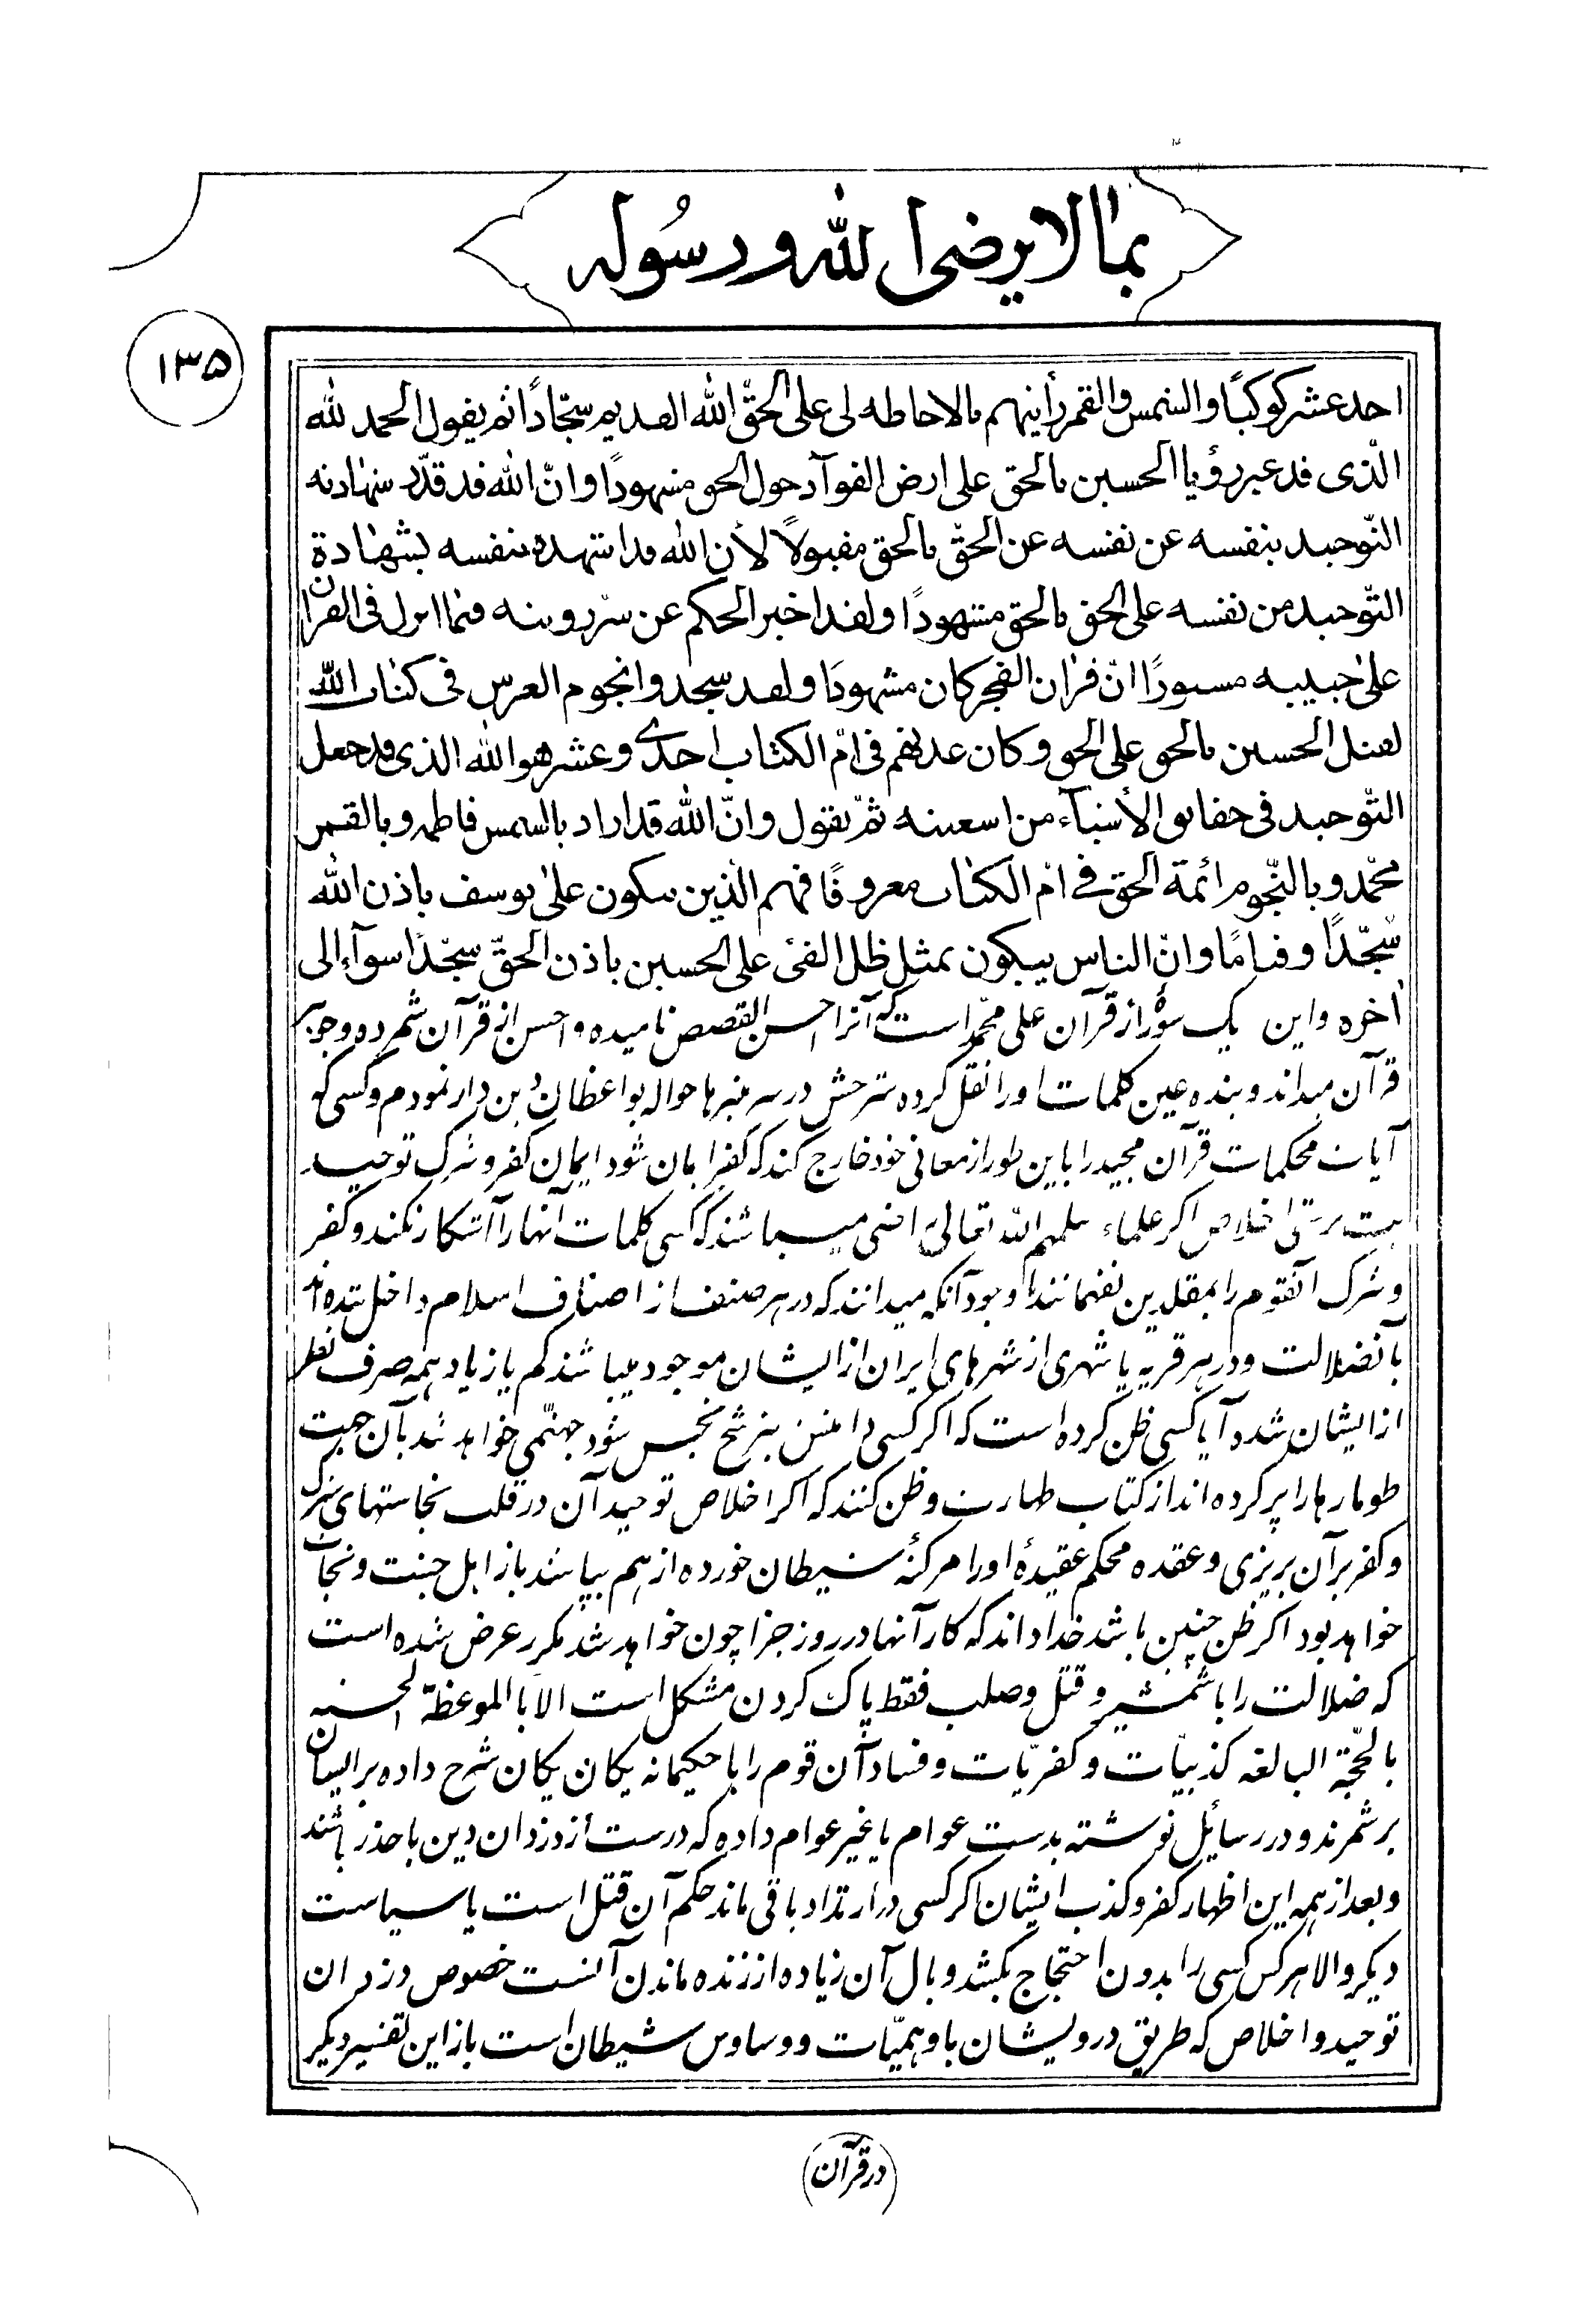 بما لا يرضى الله و رسوله
١٣٥
احد عشر كوكبًا و الشمس و القمر رأيتهم بالاحاطه لى على الحقّ الله القديم سجّادًا ثم يقول الحمد لله
الّذى قد عبر رؤيا الحسين بالحق على ارض الفوآد حول الحق مشهودًا و انّ الله قد قدّر شهادته
التّوحيد بنفسه عن نفسه عن الحقّ بالحق مقبولاً لأن الله قد اشهده بنفسه بشهادة
التّوحيد من نفسه على الحق بالحق مشهودًا و لقد اخبر الحكم عن سرّ رويته فيما انزل فى القرآن
على حبيبه مستورًا انّ قران الفجر كان مشهودًا و لقد سجدوا نجوم العرش فى كتاب الله
لقتل الحسين بالحق على الحق و كان عدتهم فى امّ الكتاب احدى و عشر هو الله الذى قد جعل
التّوحيد فى حقايق الأشيآء من اسعته ثمّ يقول و انّ الله قد اراد بالشمس فاطمه و بالقمر
محمّد و بالنّجوم ائمة الحق فى امّ الكتاب معروفًا فهم الّذين يبكون على يوسف باذن الله
سُجّدًا و قيامًا و انّ الناس يبكون بمثل ظل الفئ على الحسين باذن الحقّ سجّدًا سوآء الى
اخره و اين يك سورۀ از قرآن على محمّد است كه آنرا احسن القصص ناميده و احسن از قرآن شمرده و جزء
قرآن ميداند و بنده عين كلمات او را نقل كرده شرحش در سر منبرها حواله بواعظان دين دار نمودم و كسى كه
آيات محكمات قرآن مجيد را باين طور از معانى خود خارج كند كه كفر ايمان شود ايمان كفر و شرك توحيد
بت پرستى اخلاص اكر علماء سلمهم الله تعالى راضى ميباشند كه كسى كلمات آنها را آشكار نكند و كفر
و شرك انقوم را بمقلدين نفهمانند با وجود آنكه ميدانند كه در هر صنف از اصناف اسلام داخل شده اند
بآنضلالت و در هر قريه يا شهرى از شهرهاى ايران از ايشان موجود ميباشند كم يا زياد همه صرف نظر
از ايشان شد و آيا كسى ظن كرده است كه اكر كسى دامنش بترشح نجس شود جهنّمى خواهد شد بآن جهت
طومارها را پر كرده اند از كتاب طهارت و ظن كنند كه اكر اخلاص توحيد آن در قلب نجاستهاى شرك
و كفر بر آن بريزى و عقده محكم عقيدۀ او را هر كنۀ شيطان خورده از هم بپاشد باز اهل جنت و نجات
خواهد بود اكر ظن چنين باشد خدا داند كه كار آنها در روز جزا چون خواهد شد مكرر عرض شده است
كه ضلالت را با شمشير و قتل و صلب فقط پاك كردن مشكل است الا بالموعظة الحسنه
بالحجّة البالغه كذبيّات و كفريّات و فساد آن قوم را با حكيمانه يكان يكان شرح داده بر ايشان
بر شمرند و در رسايل نوشته بدست عوام يا غير عوام داده كه درست از دزدان دين با حذر باشند
و بعد از همه اين اظهار كفر و كذب ايشان اكر كسى در ارتداد باقى ماند حكم آن قتل است يا سياست
ديكر و الا هر كس كسى را بدون احتجاج بكشد وبال آن زياده از زنده ماندن آنست خصوص دزدان
توحيد و اخلاص كه طريق درويشان با وهميّات و وساوس شيطان است باز اين تفسير ديكر
(در قرآن)